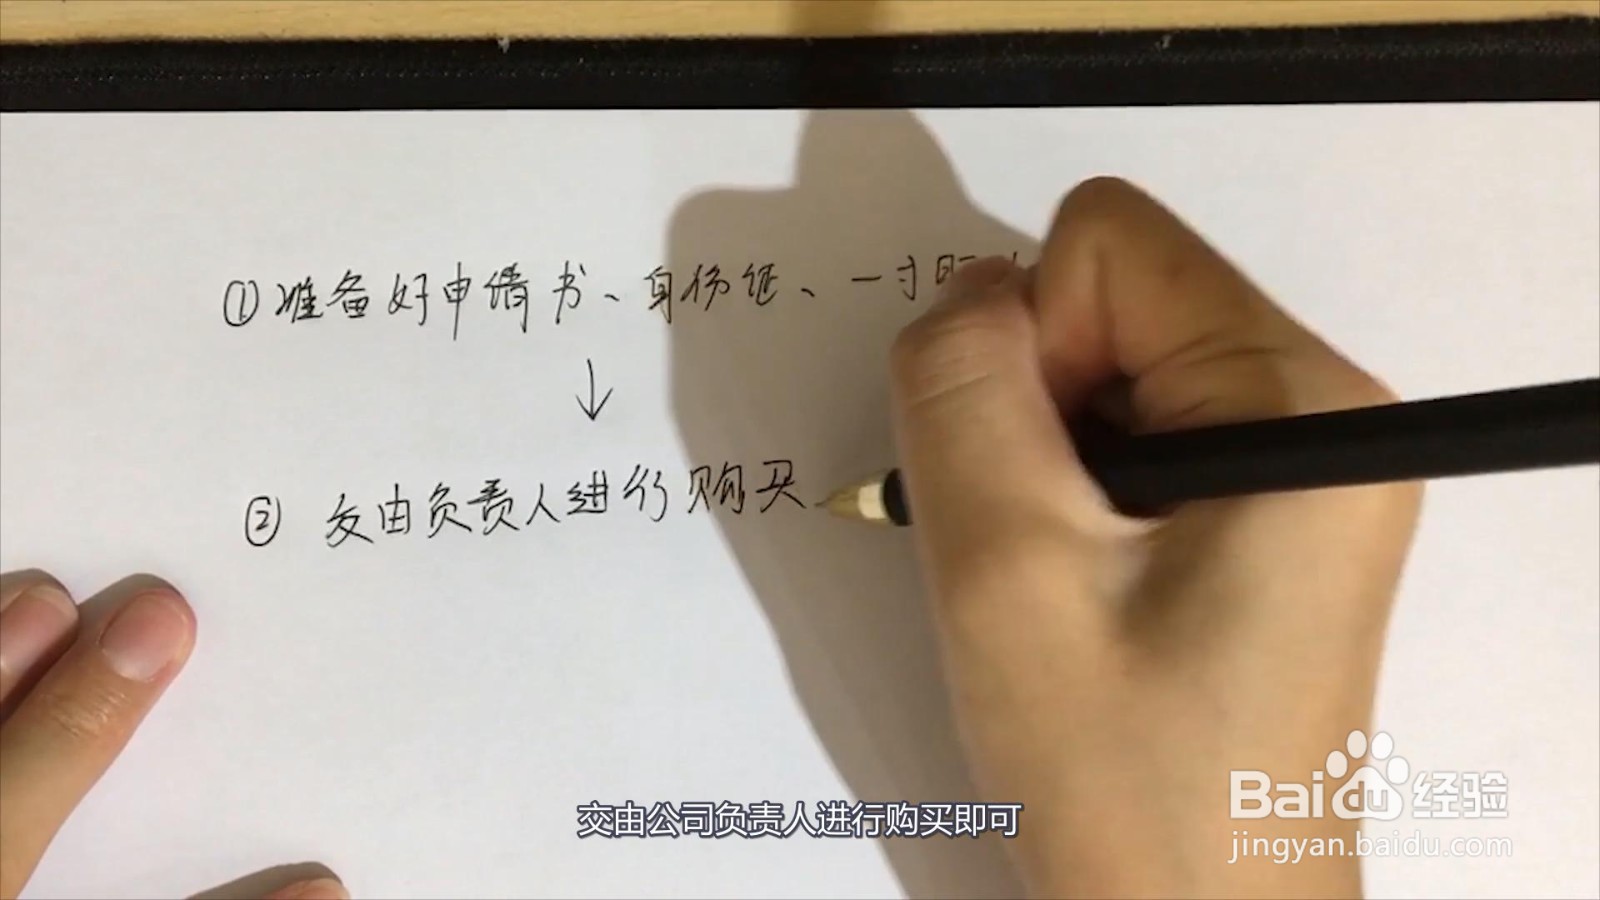 ①准备好申请书、身份证、一寸照
↓
② 交由负责人进行购买
交由公司负责人进行购买即可
Bai du 经验
jingyan.baidu.com